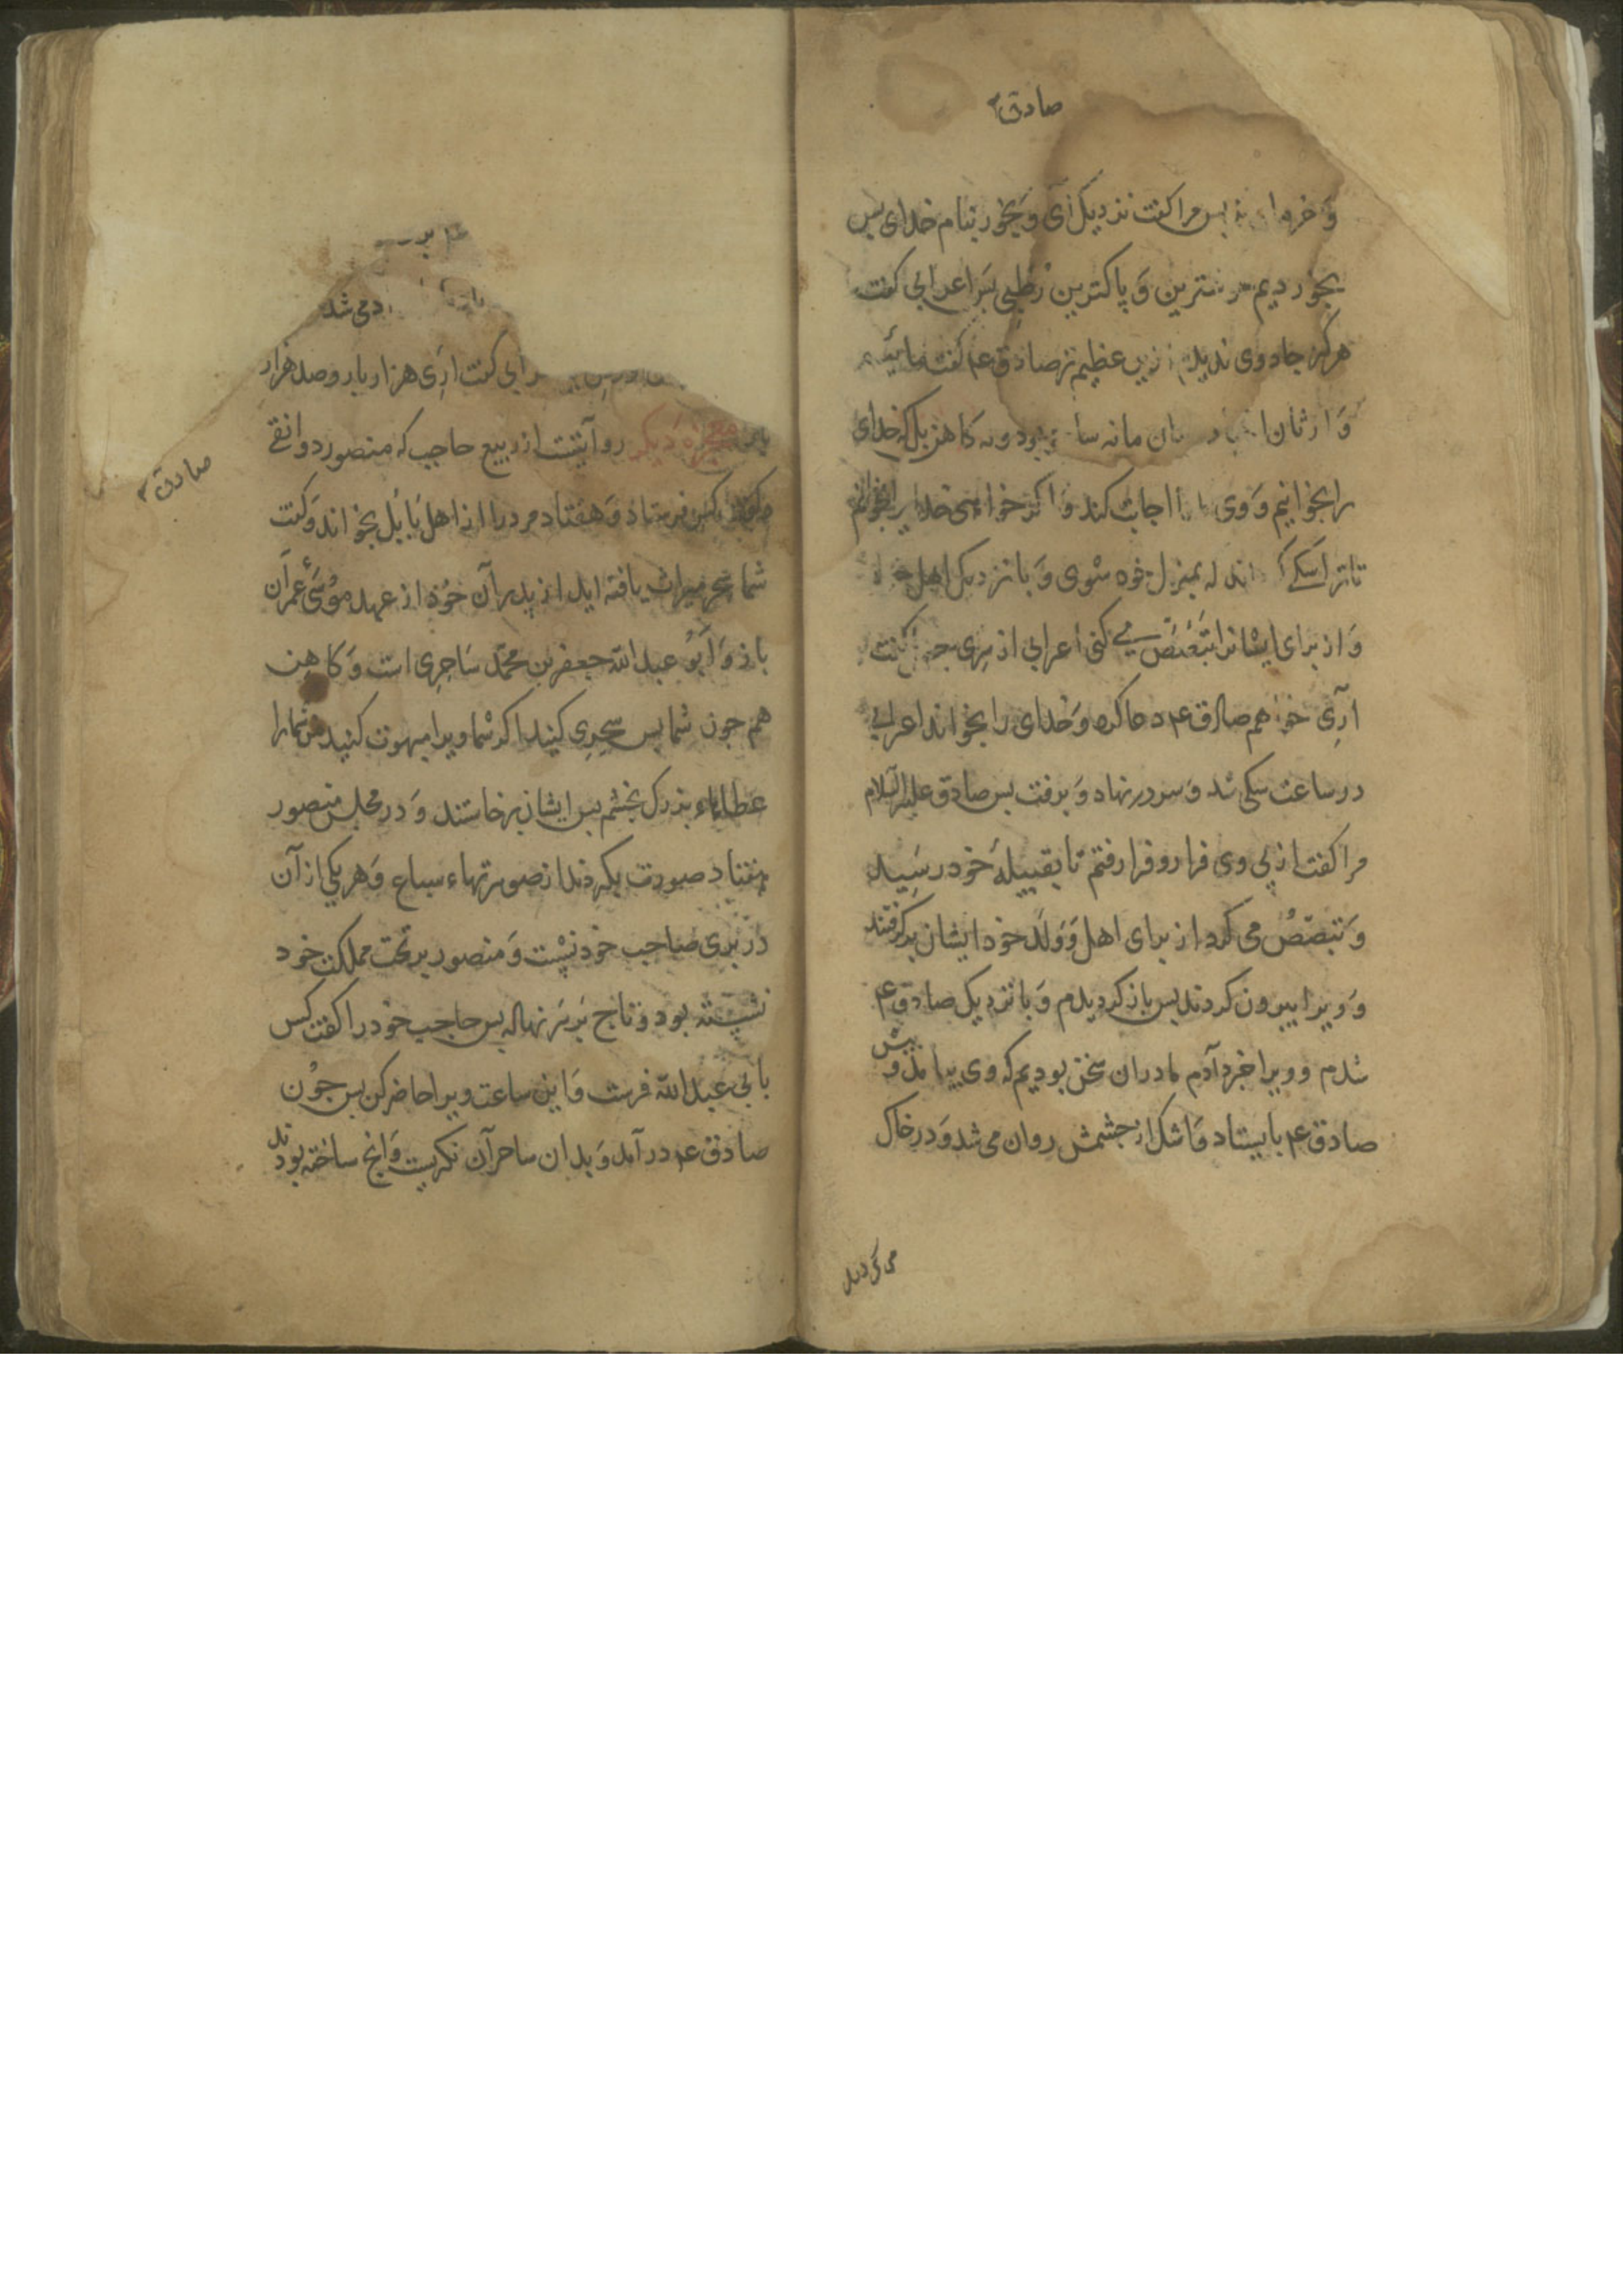 صادق ع
و خرما پس مرا کفت نزدیک آی و بخور بنام خدای پس
بخوردیم و پاکترین رطبی پس اعرابی کفت
هرکز جادوی ندیدم ازین عظیم تر صادق ع کفت مائیم
وارثان مانه ساحر بود ونه کاهن بلکه خدای
را بخوانیم و وی اجابت کند و اکر خواهی خدایرا بخوانم
تا ترا سکی به بمنزل خود شوی و بانزدیک اهل خود
و از برای ایشان تبصبص می کنی اعرابی از سر جهل کفت
آری خواهم صادق ع دعا کرد و خدای را بخواند اعرابی
در ساعت سکی شد و سر در نهاد و برفت پس صادق علیه السلام
مرا کفت از پی وی فرا رو فرا رفتم تا بقبیلهٔ خود رسید
و تبصبص می کرد از برای اهل و ولد خود ایشان بر کرفتند
و ویرا بیرون کردند پس باز کردیدم و بانزدیک صادق ع
شدم و ویرا خبر دادم ما دران سخن بودیم که وی بیامد و پیش
صادق ع بایستاد و اشک از جشمش روان می شد و در خاک
می کردید
می شد
اعرابی کفت آری هزار بار و صد هزار
بار معجزه دیکر روایتست از ربیع حاجب که منصور دوانقی
کس فرستاد و هفتاد مرد را از اهل بابل بخواند و کفت
شما سحر میراث یافته اید از پدران خود از عهد موسی عمران
باز و ابو عبد الله جعفر بن محمد ساحری است و کاهن
هم جون شما پس سحری کنید اکر شما ویرا مبهوت کنید من شما را
عطاهاء بزرک بخشم پس ایشان برخاستند و در مجلس منصور
هفتاد صورت بکردند از صورتهاء سباع و هر یکی از آن
در بری صاحب خود نشست و منصور بر تخت مملکت خود
نشسته بود و تاج بر سر نهاده پس حاجب خود را کفت کس
بابی عبد الله فرست و این ساعت ویرا حاضر کن پس جون
صادق ع در آمد و بدان ساحران نکریست و آنج ساخته بودند
صادق ع